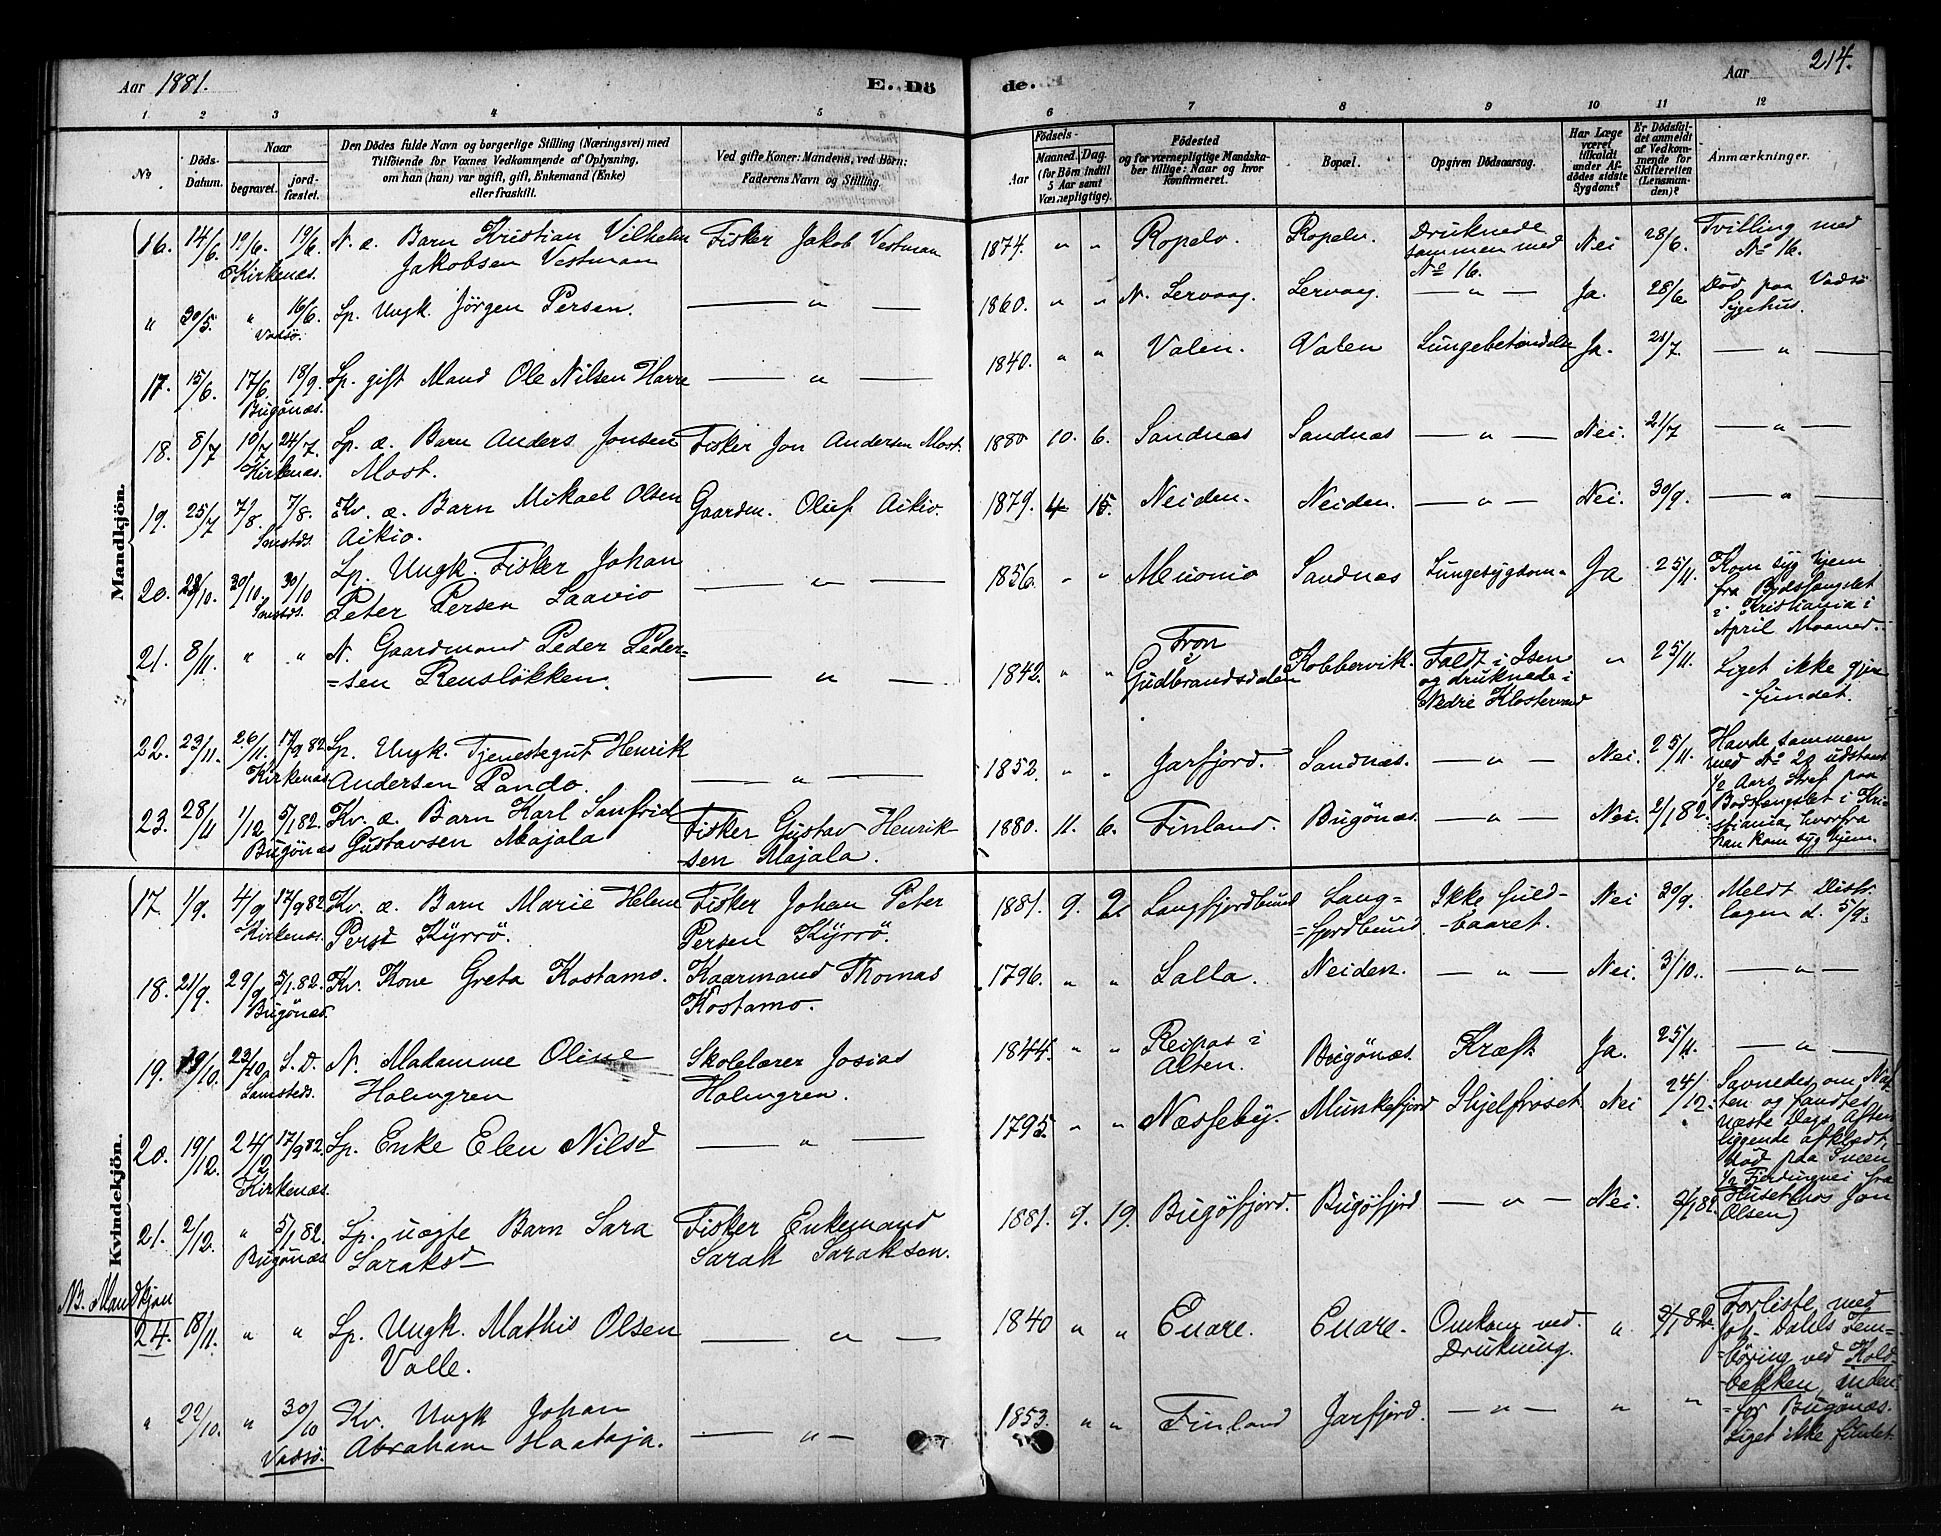 Aar 1881. E. Dö
de. Aar 214.
1. 2 3 4 5
6 7 8 9 10 11 12
No
Döds-Datum.
Naar
begravet.
jord-fæstet.
Den Dödes fulde Navn og borgerlige Stilling (Næringsvei) med
Tilföiende for Voxnes Vedkommende af Oplysning,
om han (hun) var ugift, gift, Enkemand (Enke)
eller fraskilt.
Ved gifte Koner: Mandens, ved Börn:
Faderens Navn og Stilling.
Födsels-
Aar
Maaned. Dag.
(for Börn indtil
5 Aar samt
Værnepligtige).
Födested
og for værnepligtige Mandska-
ber tillige: Naar og hvor
Konfirmeret.
Bopæl.
Opgiven Dödsaarsag.
Har Læge
været
tilkaldt
under Af-
dödes sidste
Sygdom?
Er Dödsfal-
det anmeldt
af Vedkom-
mende for
Skifteretten
(Lensman-
den)?
Anmærkninger.
Mandkjön.
16. 14/6. 19/6. 19/6. N. æ. Barn Kristian Vilhelm Fisker Jakob Vestman 1874. " " Ropelv. Ropelv. Druknede Nei 28/6. Tvilling med
Kirkenæs. Jakobsen Vestman sammen med No 16.
No 16.
" 30/5. " 16/6. Sp. Ungk. Jörgen Persen. — " — 1860. " " N. Lervaag. Lervaag. — " — Ja. 28/6 Död paa Vadsö
Vadsö. Sygehus.
17. 15/6. 17/6. 18/9. Sp. gift Mand Ole Nilsen Harra — " — 1840. " " Valen. Valen Lungebetændelse Ja. 21/7. — " —
Bugönæs.
18. 8/7 10/7 24/7. Sp. æ. Barn Anders Jonsen Fisker Jon Andersen Most. 1880 10. 6. Sandnæs Sandnæs — " — Nei. 21/7 — " —
Kirkenæs. Most.
19. 25/7 7/8. 7/8. Kv. æ. Barn Mikael Olsen Gaardm. Oluf Aikio. 1879. 4 15. Neiden. Neiden. — " — Nei. 30/9. — " —
Samstds. Aikio.
20. 23/10. 30/10. 30/10 Sp. Ungk. Fisker Johan — " — 1856. " " Muonio Sandnæs Lungesygdom Ja 25/11. Kom syg hjem
Samstds. Peter Persen Saavio fra Bodsfængslet
i Kristiania i
April Maaned.
21. 8/11. " " N. Gaardmand Peder Peder= — " — 1842. " " Fron i Kobbervik. Faldt i Isen " 25/11. Liget ikke gjen
=sen Rensløkken. Gudbrandsdalen og druknede i -fundet.
Nedre Klostervand
22. 23/11. 26/11. 17/9 82. Sp. Ungk. Tjenestegut Henrik — " — 1852. " " Jarfjord. Sandnæs. — " — Nei. 25/11. Havde sammen
Kirkenæs. Andersen Pando. med No 20 udstaaet
1/2 Aars Straf paa
Bodsfængslet i Kri-
stiania, hvorfra
han kom syg hjem.
23. 28/11 1/12 5/1 82. Kv. æ. Barn Karl Sanfrid Fisker Gustav Henrik- 1880. 11. 6. Finland. Bugönæs. — " — Nei. 2/1 82.
Bugönæs Gustavsen Majala -sen Majala.
Kvindekjön.
17. 1/9. 4/9 17/9 82 Kv. æ. Barn Marie Helene Fisker Johan Peter 1881. 9. 2. Langfjordbund Lang= Ikke fuld- Nei 30/9. Meldt Distr.
Kirkenæs. Persd Kyrrö. Persen Kyrrö. =fjordbund. -baaret. lægen d. 5/9.
18. 21/9. 29/9. 5/1 82. Kv. Kone Greta Kostamo. Kaarmand Thomas 1796. " " Salla. Neiden. — " — Nei. 3/10. — " —
Bugönæs. Kostamo.
19. 19/10. 23/10. S. D. N. Madamme Oline Skolelærer Josias 1844. " " Reipas i Bugönæs. Kræft Ja. 25/11. — " —
Samsteds. Holmgren Holmgren. Alten.
20. 19/12. 24/12 17/9 82. Sp. Enke Elen Nilsd — " — 1795. " " Næsseby. Munkefjord Ihjelfroset Nei 24/12. Savnedes om Nat
Kirkenæs. ten og fandtes
næste Dags Aften
liggende afklædt,
död paa Sneen
1/2 Fjerdingvei fra
Huset (hos Jon
Olsen)
21. 2/12. " 5/1 82. Sp. uægte Barn Sara Fisker Enkemand 1881. 9. 19. Bugöfjord. Bugöfjord — " — Nei. 2/1 82.
Bugönæs Saraksd Sarak Saraksen.
NB. Mandkjön
24. 18/11. " " Sp. Ungk. Mathis Olsen — " — 1840 " " Enare. Enare. Omkom ved " 2/1 82. Forliste med
Valle. Drukning. Joh. Dahls Fem=
=böring ved Hold=
=bakken inden=
=for Bugönæs.
Liget ikke fundet.
" 22/10. " 30/10 Kv. Ungk Johan — " — 1853. " " Finland Jarfjord. — " — " "
Vadsö. Abraham Haataja.